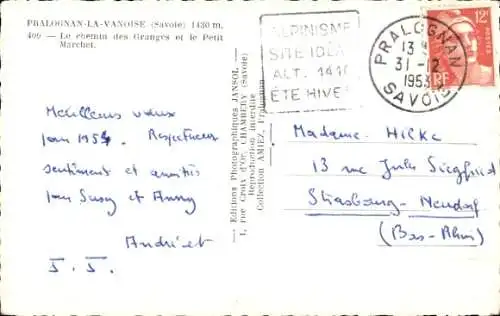 PRALOGNAN-LA-VANOISE (Savoie) 1430 m.
400 — Le chemin des Granges et le Petit
Marchet.
Meilleurs vœux
pour 1954. Respectueux
sentiments et amitiés
pour Susy et Anny
André et
J. J.
— Editions Photographiques JANSOL —
1, rue Croix d'Or, CHAMBERY (Savoie)
Reproduction interdite
Collection AMIEZ, Pralognan
ALPINISME
SITE IDÉA
ALT. 1410
ÉTÉ HIVE
PRALOGNAN
13 H
31-12
1953
SAVOIE
12F
RF
Madame Hilke
13 rue Jules Siegfried
Strasbourg-Neudorf
(Bas-Rhin)